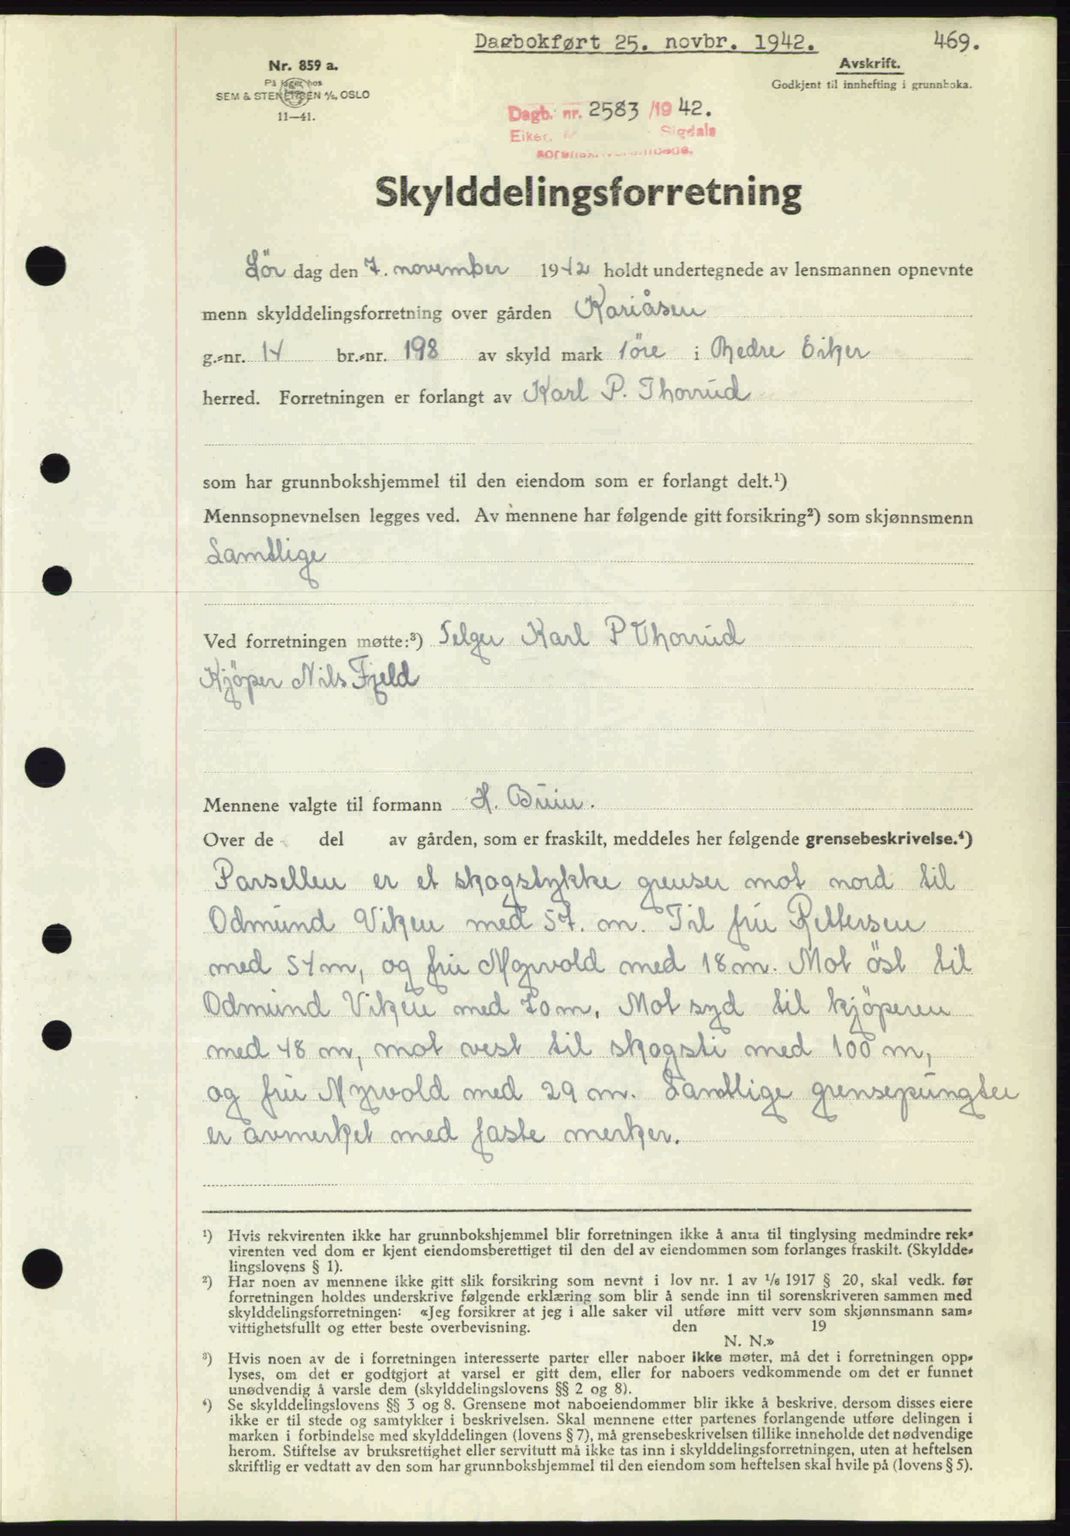 Dagbokført 25. novbr. 1942.
469.
Nr. 859 a.
På lager hos
SEM & STENERSEN A/S, OSLO
11—41.
Avskrift.
Godkjent til innhefting i grunnboka.
Dagb. nr. 2583/1942.
Eiker, Sigdals
Skylddelingsforretning
Lør dag den 7. november 1942 holdt undertegnede av lensmannen opnevnte
menn skylddelingsforretning over gården Kariåsen
g.-nr. 14 br.-nr. 198 av skyld mark 1 öre i Nedre Eiker
herred. Forretningen er forlangt av Karl P. Thorrud
som har grunnbokshjemmel til den eiendom som er forlangt delt.¹)
Mennsopnevnelsen legges ved. Av mennene har følgende gitt forsikring²) som skjønnsmenn
Samtlige
Ved forretningen møtte:³) Selger Karl P Thorrud
Kjöper Nils Fjeld
Mennene valgte til formann H. Buin.
Over de del av gården, som er fraskilt, meddeles her følgende grensebeskrivelse.⁴)
Parsellen er et skogstykke grenser mot nord til
Odmund Viken med 57. m. Til fru Pettersen
med 54 m, og fru Myrvold med 18 m. Mot öst til
Odmund Viken med 70 m, Mot syd til kjöperen
med 48 m, mot vest til skogsti med 100 m,
og fru Myrvold med 29 m. Samtlige grensepungter
er avmerket med faste merker.
¹) Hvis rekvirenten ikke har grunnbokshjemmel blir forretningen ikke å anta til tinglysing medmindre rek-
virenten ved dom er kjent eiendomsberettiget til den del av eiendommen som forlanges fraskilt. (Skyldde-
lingslovens § 1).
²) Har noen av mennene ikke gitt slik forsikring som nevnt i lov nr. 1 av 1/6 1917 § 20, skal vedk. før
forretningen holdes underskrive følgende erklæring som blir å sende inn til sorenskriveren sammen med
skylddelingsforretningen: «Jeg forsikrer at jeg i alle saker vil utføre mitt verv som skjønnsmann sam-
vittighetsfullt og etter beste overbevisning. den 19
N. N.»
³) Hvis noen av de i forretningen interesserte parter eller naboer ikke møter, må det i forretningen opp-
lyses, om det er godtgjort at varsel er gitt dem, eller for naboers vedkommende om det er funnet
unødvendig å varsle dem (skylddelingslovens §§ 2 og 8).
⁴) Se skylddelingslovens §§ 3 og 8. Grensene mot naboeiendommer blir ikke å beskrive, dersom disses eiere
ikke er til stede og samtykker i beskrivelsen. Skal mennene etter partenes forlangende utføre delingen i
marken i forbindelse med skylddelingen (lovens § 7), må grensebeskrivelsen tillike inneholde det nødvendige
herom. Stiftelse av bruksrettighet eller servitutt må ikke tas inn i skylddelingsforretningen, uten at heftelsen
skriftlig er vedtatt av den som har grunnbokshjemmel til den eiendom som heftelsen skal hvile på (lovens § 5).